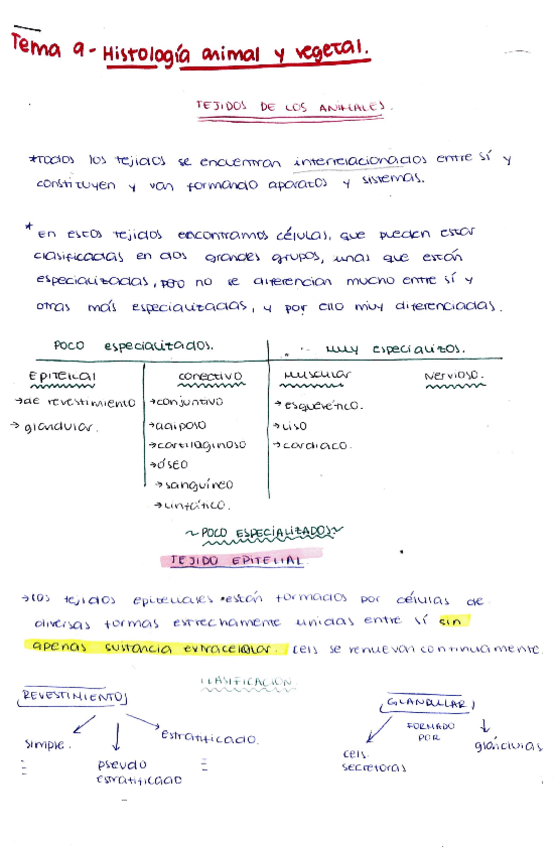 Tema 9- Histología animal y vegetal.
TEJIDOS DE LOS ANIMALES.
*Todos los tejidos se encuentran interrelacionados entre sí y
constituyen y van formando aparatos y sistemas.
* en estos tejidos encontramos células, que pueden estar
clasificadas en dos grandes grupos, unas que están
especializadas, pero no se diferencian mucho entre sí y
otras más especializadas, y por ello muy diferenciadas.
POCO especializados. muy especializos.
EPITELIAL conectivo muscular nervioso.
→de revestimiento →conjuntivo →esquelético.
→ glandular. →adiposo →liso
→cartilaginoso →cardiaco.
→óseo
→sanguíneo
→linfático.
~POCO ESPECIALIZADOS~
TEJIDO EPITELIAL
→los tejidos epiteliales están formados por células de
diversas formas estrechamente unidas entre sí sin
apenas sustancia extracelular. Cels se renuevan continuamente.
CLASIFICACIÓN.
REVESTIMIENTO GLANDULAR
simple. pseudo estratificado estratificado. FORMADO POR
cels secretoras glándulas